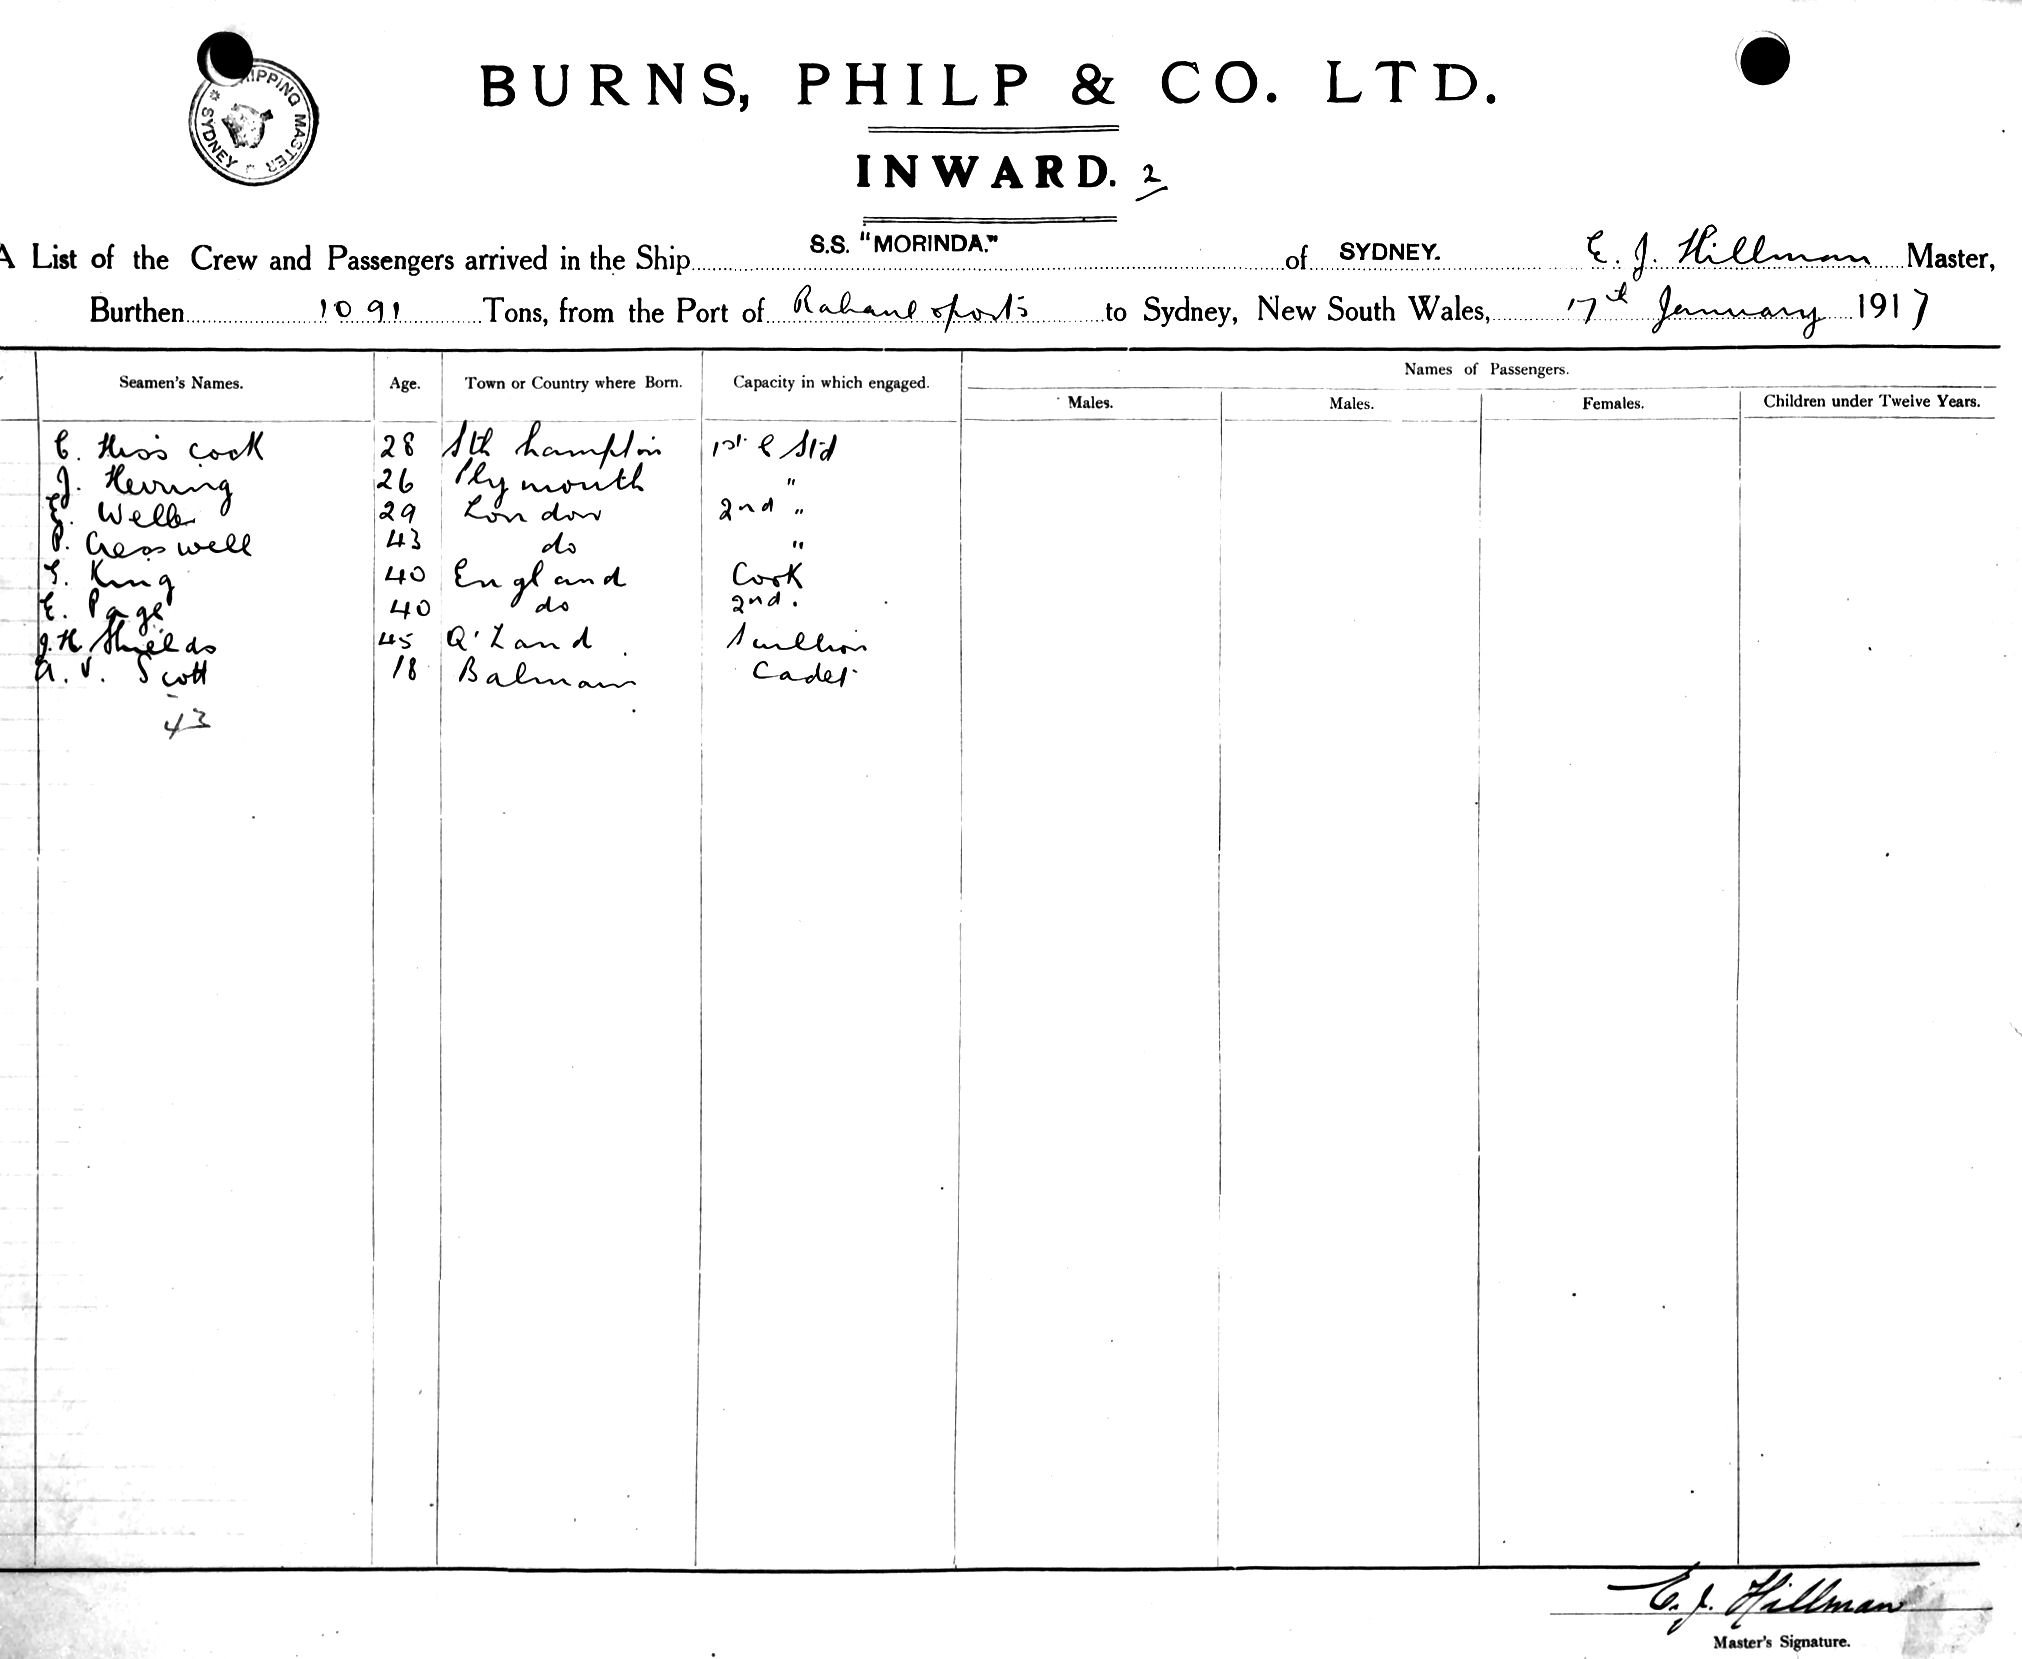 SHIPPING MASTER
SYDNEY
BURNS, PHILP & CO. LTD.
INWARD. 2
A List of the Crew and Passengers arrived in the Ship S.S. "MORINDA." of SYDNEY. E. J. Hillman Master,
Burthen 1091 Tons, from the Port of Rabaul & ports to Sydney, New South Wales, 17th January 1917
Names of Passengers.
Seamen's Names. Age. Town or Country where Born. Capacity in which engaged.
Males. Males. Females. Children under Twelve Years.
C. Hiscock 28 Sthhampton 1st C Std
J. Herring 26 Plymouth "
Wells 29 London 2nd "
P. Cresswell 43 do "
King 40 England Cook
E. Page 40 do 2nd.
J. H. Shields 45 Q'Land Scullion
A. V. Scott 18 Balmain Cadet
43
E. J. Hillman
Master's Signature.